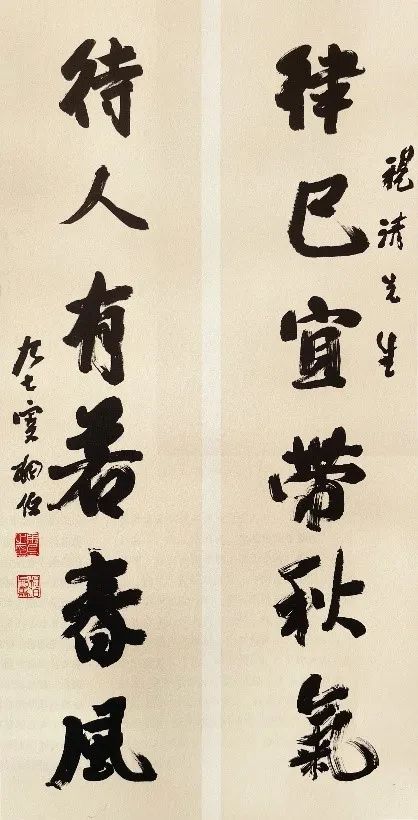 律己宜帶秋氣
清先生
待人有若春風
九七叟相伯